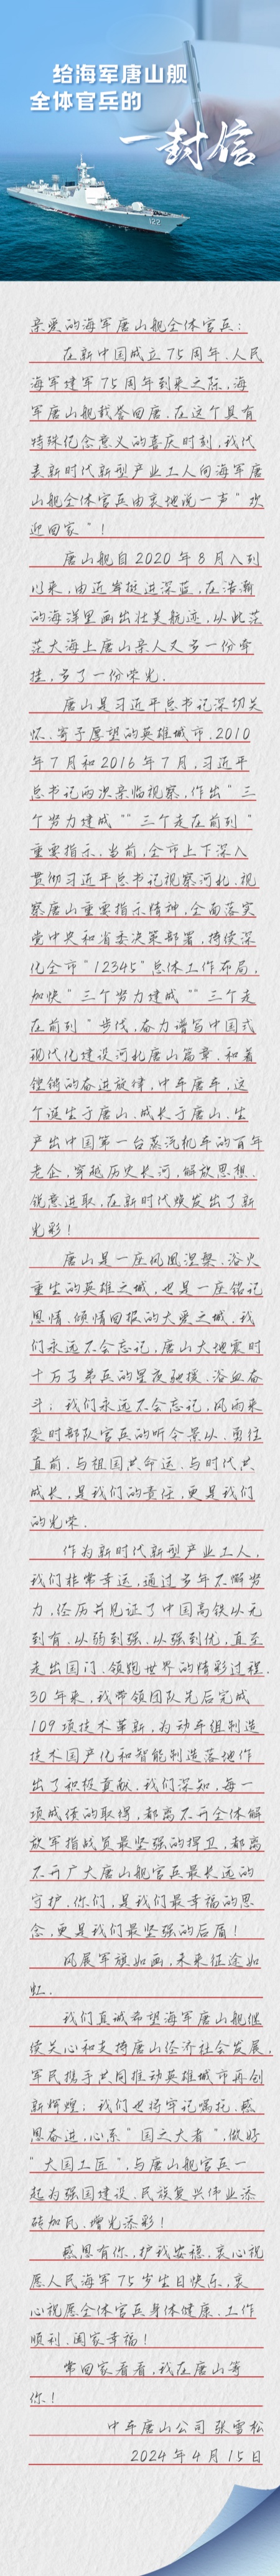 给海军唐山舰
全体官兵的
一封信
122
亲爱的海军唐山舰全体官兵：
在新中国成立75周年、人民
海军建军75周年到来之际，海
军唐山舰载誉回唐。在这个具有
特殊纪念意义的喜庆时刻，我代
表新时代新型产业工人向海军唐
山舰全体官兵由衷地说一声“欢
迎回家”！
唐山舰自2020年8月入列
以来，由近岸挺进深蓝，在浩瀚
的海洋里画出壮美航迹，从此茫
茫大海上唐山亲人又多一份牵
挂，多了一份荣光。
唐山是习近平总书记深切关
怀、寄予厚望的英雄城市。2010
年7月和2016年7月，习近平
总书记两次亲临视察，作出“三
个努力建成”“三个走在前列”
重要指示。当前，全市上下深入
贯彻习近平总书记视察河北、视
察唐山重要指示精神，全面落实
党中央和省委决策部署，持续深
化全市“12345”总体工作布局，
加快“三个努力建成”“三个走
在前列”步伐，奋力谱写中国式
现代化建设河北唐山篇章。和着
铿锵的奋进旋律，中车唐车，这
个诞生于唐山、成长于唐山、生
产出中国第一台蒸汽机车的百年
老企，穿越历史长河，解放思想、
锐意进取，在新时代焕发出了新
光彩！
唐山是一座凤凰涅槃、浴火
重生的英雄之城，也是一座铭记
恩情、倾情回报的大爱之城。我
们永远不会忘记，唐山大地震时
十万子弟兵的星夜驰援、浴血奋
斗；我们永远不会忘记，风雨来
袭时部队官兵的听令景从、勇往
直前。与祖国共命运、与时代共
成长，是我们的责任，更是我们
的光荣。
作为新时代新型产业工人，
我们非常幸运，通过多年不懈努
力，经历并见证了中国高铁从无
到有、从弱到强、从强到优，直至
走出国门、领跑世界的精彩过程。
30年来，我带领团队先后完成
109项技术革新，为动车组制造
技术国产化和智能制造落地作
出了积极贡献。我们深知，每一
项成绩的取得，都离不开全体解
放军指战员最坚强的捍卫，都离
不开广大唐山舰官兵最长远的
守护。你们，是我们最幸福的思
念，更是我们最坚强的后盾！
风展军旗如画，未来征途如
虹。
我们真诚希望海军唐山舰继
续关心和支持唐山经济社会发展，
军民携手共同推动英雄城市再创
新辉煌；我们也将牢记嘱托、感
恩奋进，心系“国之大者”，做好
“大国工匠”，与唐山舰官兵一
起为强国建设、民族复兴伟业添
砖加瓦、增光添彩！
感恩有你，护我安稳。衷心祝
愿人民海军75岁生日快乐，衷
心祝愿全体官兵身体健康、工作
顺利、阖家幸福！
常回家看看，我在唐山等
你！
中车唐山公司 张雪松
2024年4月15日